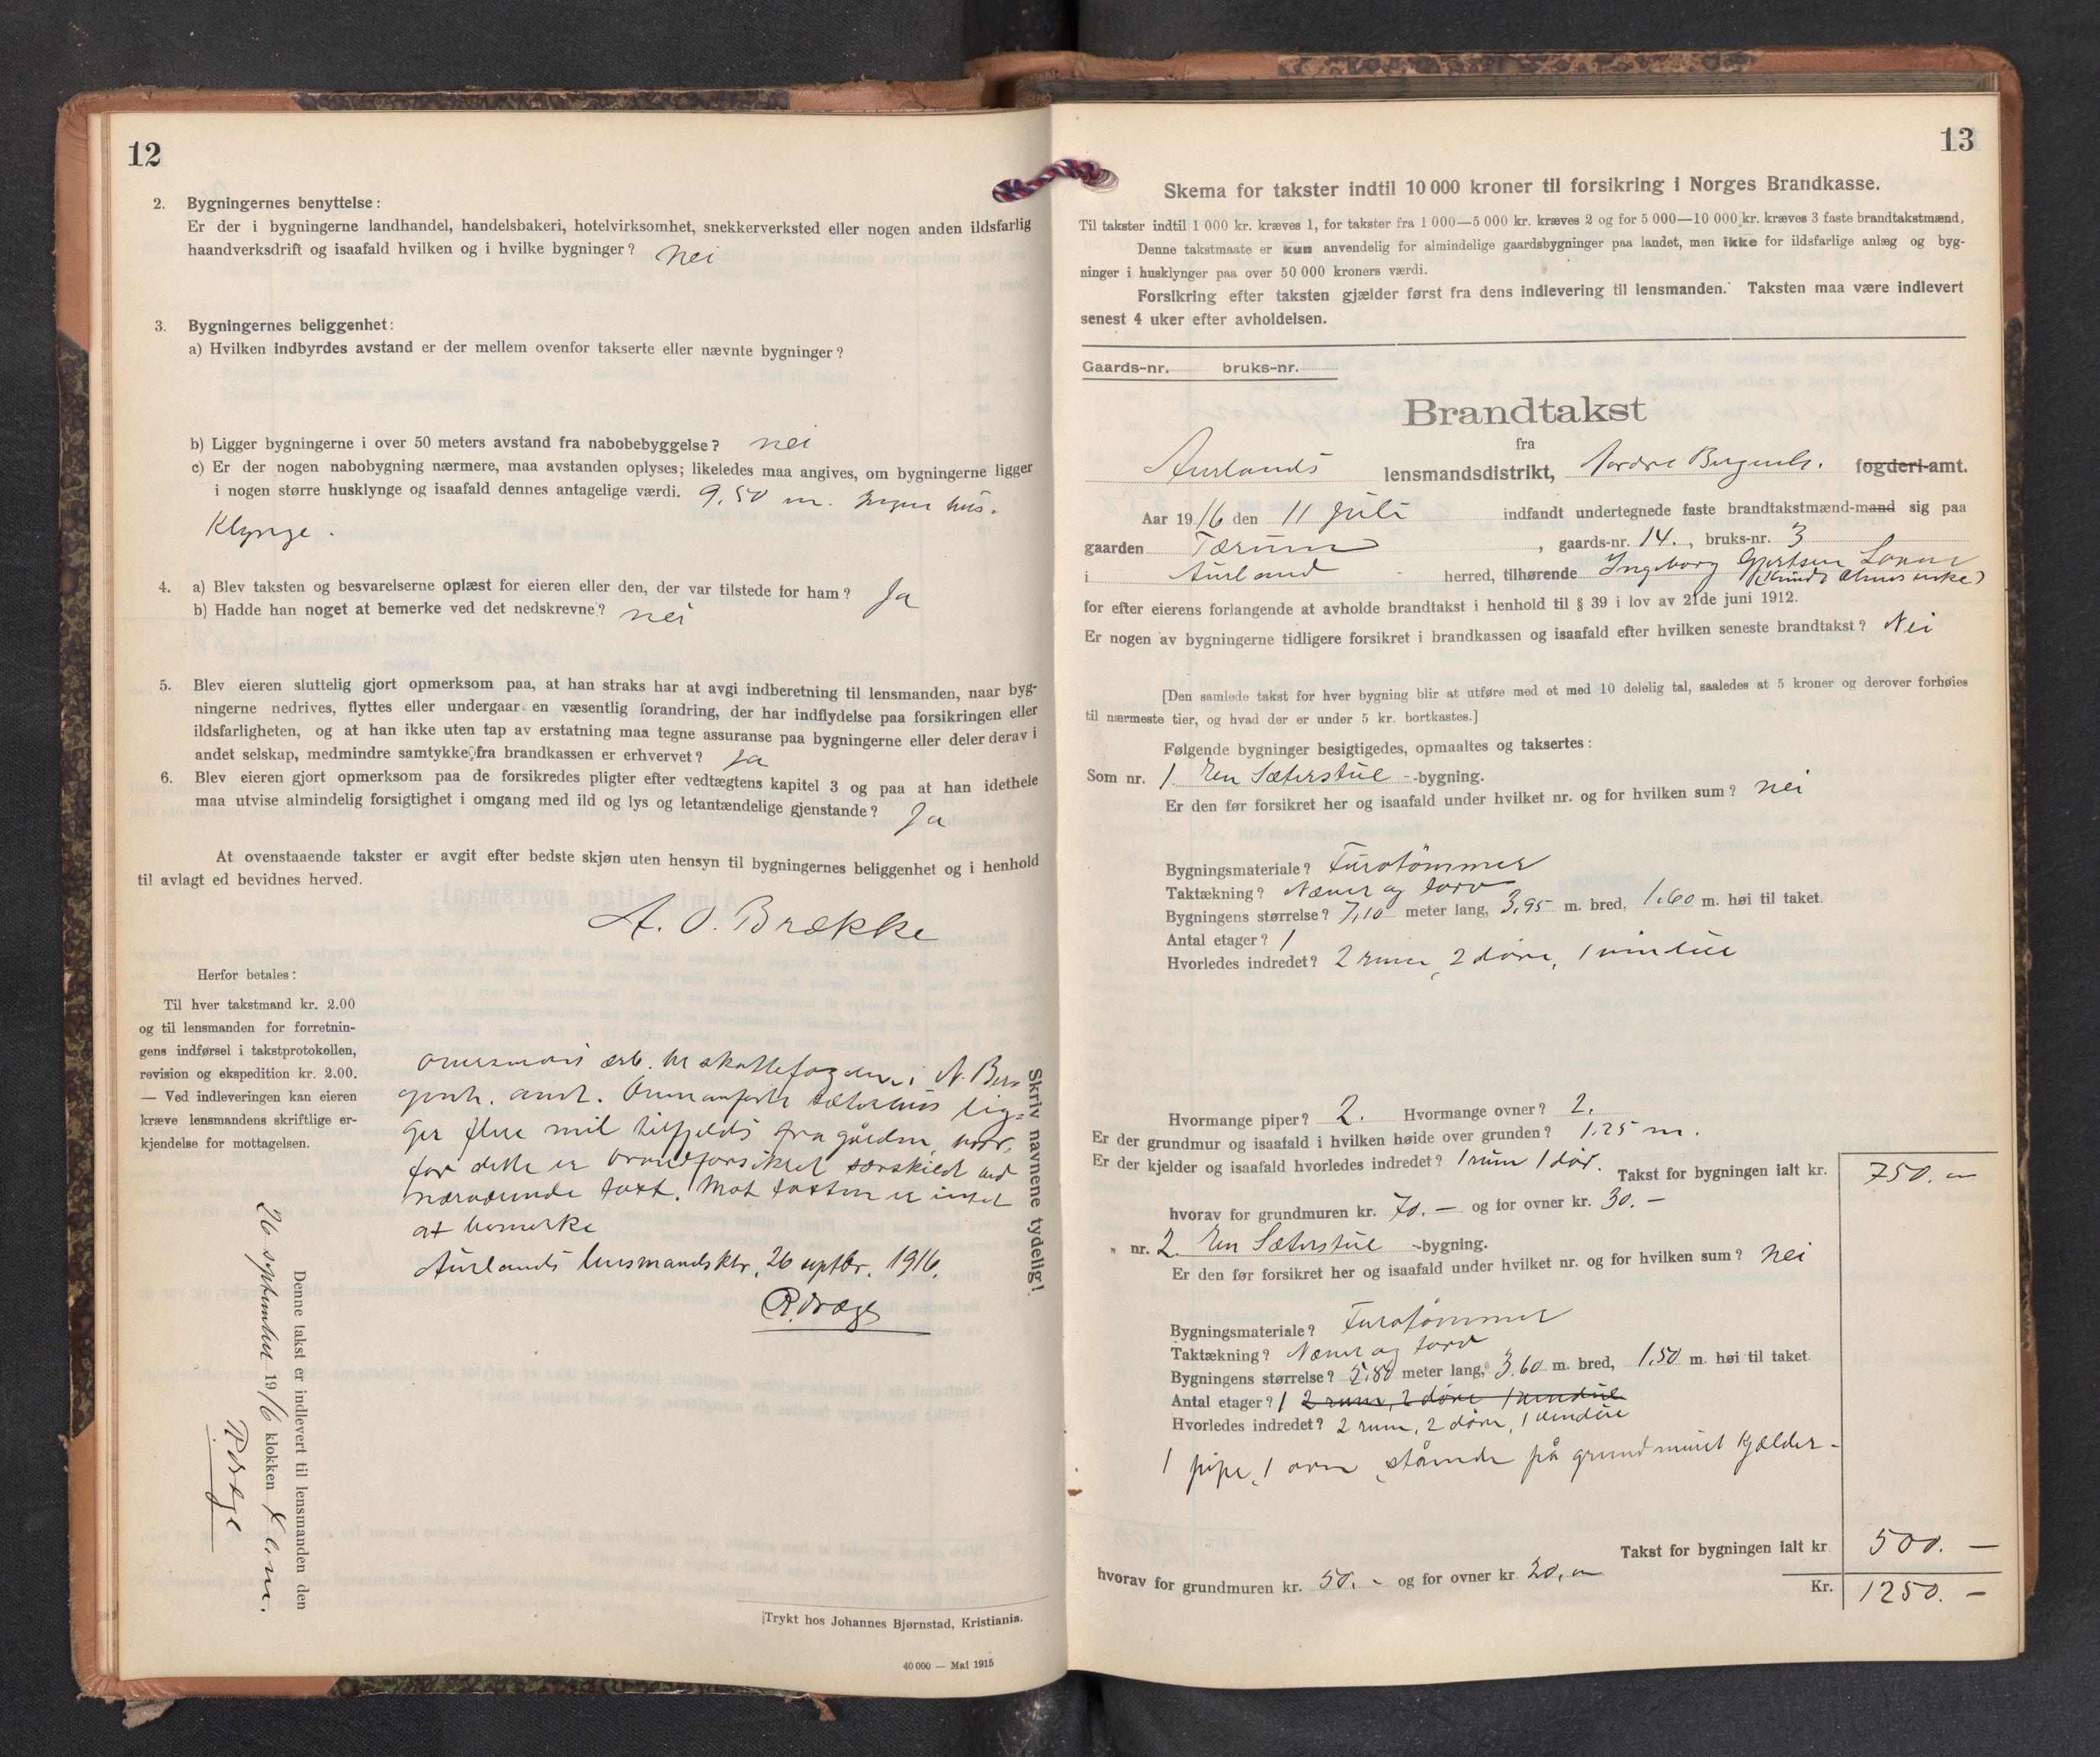 12
2. Bygningernes benyttelse:
Er der i bygningerne landhandel, handelsbakeri, hotelvirksomhet, snekkerverksted eller nogen anden ildsfarlig
haandverksdrift og isaafald hvilken og i hvilke bygninger? Nei
3. Bygningernes beliggenhet:
a) Hvilken indbyrdes avstand er der mellem ovenfor takserte eller nævnte bygninger?
b) Ligger bygningerne i over 50 meters avstand fra nabobebyggelse? Nei
c) Er der nogen nabobygning nærmere, maa avstanden oplyses; likeledes maa angives, om bygningerne ligger
i nogen større husklynge og isaafald dennes antagelige værdi. 9,50 m. Ingen hus-
klynge.
4. a) Blev taksten og besvarelserne oplæst for eieren eller den, der var tilstede for ham? Ja
b) Hadde han noget at bemerke ved det nedskrevne? Nei
5. Blev eieren sluttelig gjort opmerksom paa, at han straks har at avgi indberetning til lensmanden, naar byg-
ningerne nedrives, flyttes eller undergaar en væsentlig forandring, der har indflydelse paa forsikringen eller
ildsfarligheten, og at han ikke uten tap av erstatning maa tegne assuranse paa bygningerne eller deler derav i
andet selskap, medmindre samtykke fra brandkassen er erhvervet? Ja
6. Blev eieren gjort opmerksom paa de forsikredes pligter efter vedtægtens kapitel 3 og paa at han idethele
maa utvise almindelig forsigtighet i omgang med ild og lys og letantændelige gjenstande? Ja
At ovenstaaende takster er avgit efter bedste skjøn uten hensyn til bygningernes beliggenhet og i henhold
til avlagt ed bevidnes herved.
A. O. Brække
Herfor betales:
Til hver takstmand kr. 2.00
og til lensmanden for forretnin-
gens indførsel i takstprotokollen,
revision og ekspedition kr. 2.00.
— Ved indleveringen kan eieren
kræve lensmandens skriftlige er-
kjendelse for mottagelsen.
Oversendes ærb. hr skattefogden i N. Ber-
genh. amt. Ovenanførte sæterhus lig-
ger flere mil tilfjelds fra gården, hvor-
for dette er brandforsikret særskilt ved
nærværende takst. Mot taksten er intet
at bemerke
Aurlands lensmandsktr, 26 septbr. 1916.
R. Dræge
Skriv navnene tydelig!
Denne takst er indlevert til lensmanden den
26 september 1916 klokken X fm.
R Dræge
Trykt hos Johannes Bjørnstad, Kristiania.
40 000 — Mai 1915
13
Skema for takster indtil 10 000 kroner til forsikring i Norges Brandkasse.
Til takster indtil 1 000 kr. kræves 1, for takster fra 1 000—5 000 kr. kræves 2 og for 5 000—10 000 kr. kræves 3 faste brandtakstmænd.
Denne takstmaate er kun anvendelig for almindelige gaardsbygninger paa landet, men ikke for ildsfarlige anlæg og byg-
ninger i husklynger paa over 50 000 kroners værdi.
Forsikring efter taksten gjælder først fra dens indlevering til lensmanden. Taksten maa være indlevert
senest 4 uker efter avholdelsen.
Gaards-nr. bruks-nr.
Brandtakst
fra
Aurlands lensmandsdistrikt, Nordre Bergenh. fogderi-amt.
Aar 1916 den 11 juli indfandt undertegnede faste brandtakstmænd-mand sig paa
gaarden Tærum, gaards-nr. 14., bruks-nr. 3
i Aurland herred, tilhørende Ingeborg Gjertsen
for efter eierens forlangende at avholde brandtakst i henhold til § 39 i lov av 21de juni 1912.
Er nogen av bygningerne tidligere forsikret i brandkassen og isaafald efter hvilken seneste brandtakst? Nei
[Den samlede takst for hver bygning blir at utføre med et med 10 delelig tal, saaledes at 5 kroner og derover forhøies
til nærmeste tier, og hvad der er under 5 kr. bortkastes.]
Følgende bygninger besigtigedes, opmaaltes og taksertes:
Som nr. 1. En Sæterstue -bygning.
Er den før forsikret her og isaafald under hvilket nr. og for hvilken sum? Nei
Bygningsmateriale? Furutømmer
Taktækning? Næver og torv
Bygningens størrelse? 7,10 meter lang, 3,95 m. bred, 1,60 m. høi til taket.
Antal etager? 1
Hvorledes indredet? 2 rum, 2 døre, 1 vindue
Hvormange piper? 2. Hvormange ovner? 2.
Er der grundmur og isaafald i hvilken høide over grunden? 1,25 m.
Er der kjelder og isaafald hvorledes indredet? 1 rum 1 dør. Takst for bygningen ialt kr. 750.—
hvorav for grundmuren kr. 70.— og for ovner kr. 30.—
„ nr. 2. En Sæterstue -bygning.
Er den før forsikret her og isaafald under hvilket nr. og for hvilken sum? Nei
Bygningsmateriale? Furutømmer
Taktækning? Næver og torv
Bygningens størrelse? 5,80 meter lang, 3,60 m. bred, 1,50 m. høi til taket.
Antal etager? 1 2 rum, 2 døre 1 vindue
Hvorledes indredet? 2 rum, 2 døre, 1 vindue
1 pipe, 1 ovn, stående på grundmuret kjælder-
Takst for bygningen ialt kr 500.—
hvorav for grundmuren kr. 50.— og for ovner kr 20.—
Kr. 1250.—